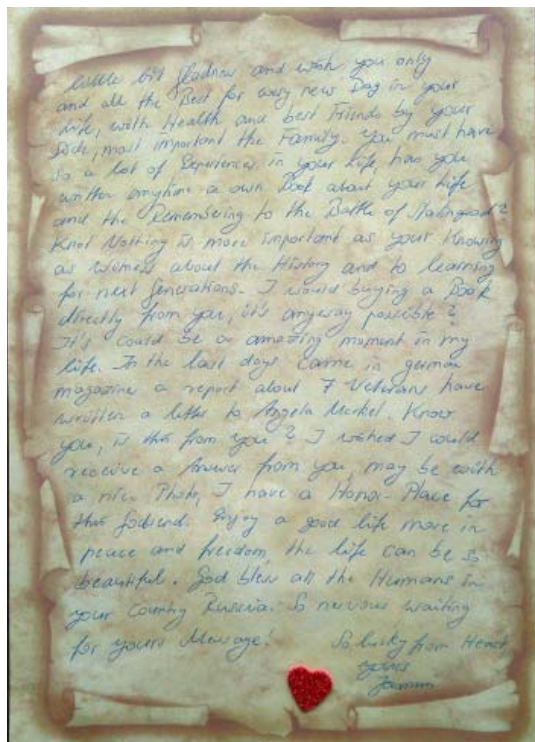 little bit Gladness and wish you only
and all the Best for every new Day in your
Life, with Health and best Friends by your
Side, most important the Family. You must have
so a lot of Experiences in your Life, has you
written anytime a own Book about your Life
and the Remembering to the Battle of Stalingrad?
Know Nothing is more important as your Knowing
as witness about the History and to learning
for next Generations. I would buying a Book
directly from you, it's anyway possible?
It's could be a amazing moment in my
life. In the last days came in german
magazine a report about 7 Veterans have
written a letter to Angela Merkel. Know
you, is this from you? I wished I could
receive a Answer from you, may be with
a nice Photo, I have a Honor-Place for
this Godsend. Enjoy a good life more in
peace and freedom, the life can be so
beautiful. God bless all the Humans in
your Country Russia. So nervous waiting
for yours Message!
So lucky from Heart
yours